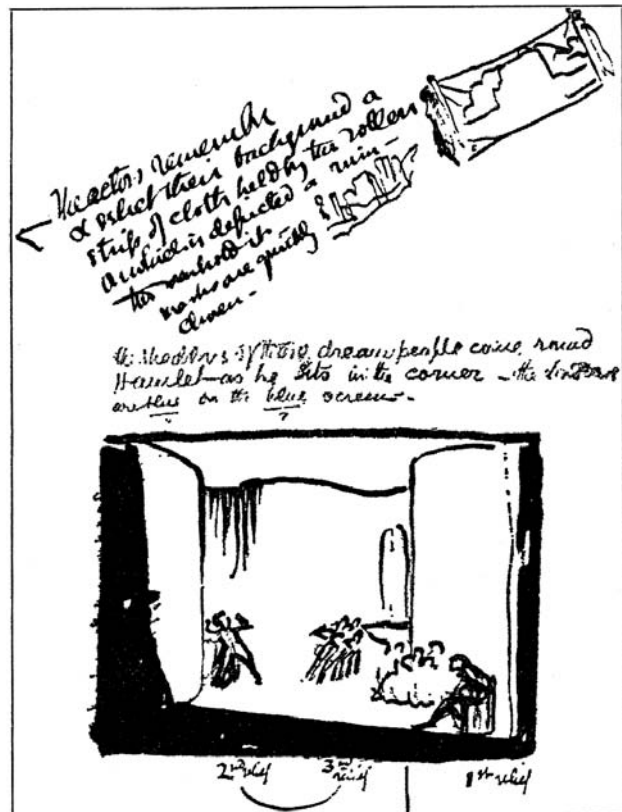 The actors remember
& select their background a
strip of cloth held by the rollers
on which is depicted a ruin—
the manhold it—
masks are quickly
chosen—
the shadows of the dream people come round
Hamlet—as he sits in the corner—the
are blue on the blue screen—
? ?
2nd relief
3rd relief
1st relief